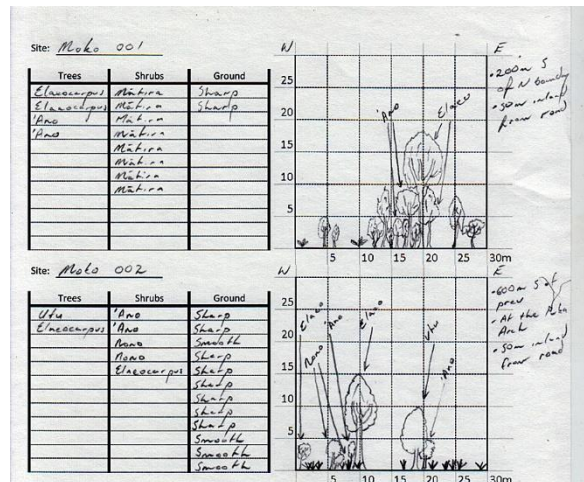 Site: Moko 001
W
E
Trees Shrubs Ground
Elaeocarpus Mātira Sharp
Elaeocarpus Mātira Sharp
'Ano Mātira
'Ano Mātira
Mātira
Mātira
Mātira
Mātira
25
20
15
10
5
'Ano
Elaeo
5 10 15 20 25 30m
• 200m S
of N boundry
• 50m inland
from road
Site: Moko 002
W
E
Trees Shrubs Ground
Utu 'Ano Sharp
Elaeocarpus 'Ano Sharp
Nono Smooth
Nono Sharp
Elaeocarpus Sharp
Sharp
Sharp
Sharp
Sharp
Smooth
Smooth
Smooth
25
20
15
10
5
Elaeo
Nono
'Ano
Elaeo
Utu
'Ano
5 10 15 20 25 30m
• 600m S of
prev
• At the
Arch
• 50m inland
from road